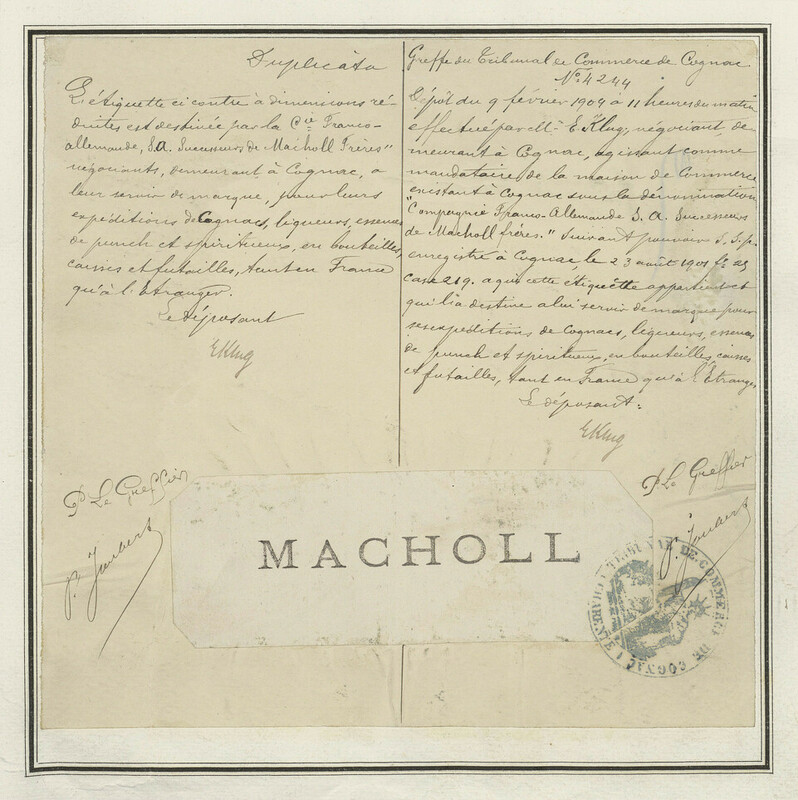 Duplicata
L'étiquette ci contre à dimensions ré-
duites est destinée par la Cie Franco-
allemande, S.A. Successeurs de Macholl Frères"
négociants, demeurant à Cognac, a
leur servir de marque, pour leurs
expéditions de Cognacs, liqueurs, essences
de punch et spiritueux, en bouteilles,
caisses et futailles, tant en France
qu'à l'Etranger.
Le déposant
EKlug
Pr Le Greffier
P. Joubert
Greffe du Tribunal de Commerce de Cognac
No. 4244
Dépôt du 9 février 1904 à 11 heures du matin
effectué par Mr. E. Klug, négociant, de-
meurant à Cognac, agissant comme
mandataire de la maison de Commerce
existant à Cognac sous la dénomination
"Compagnie Franco-Allemande S.A. Successeurs
de Macholl frères." Suivant pouvoir S.S.p.
enregistré à Cognac, le 23 août 1901 fo 25
Case 219. a qui cette étiquette appartient et
qui l'a destine a lui servir de marque pour
ses expéditions de Cognacs, liqueurs, essences
de punch et spiritueux, en bouteilles, caisses
et futailles, tant en France qu'à l'Etranger
Le déposant:
EKlug
Pr Le Greffier
P. Joubert
MACHOLL
TRIBUNAL DE COMMERCE DE COGNAC (CHARENTE)